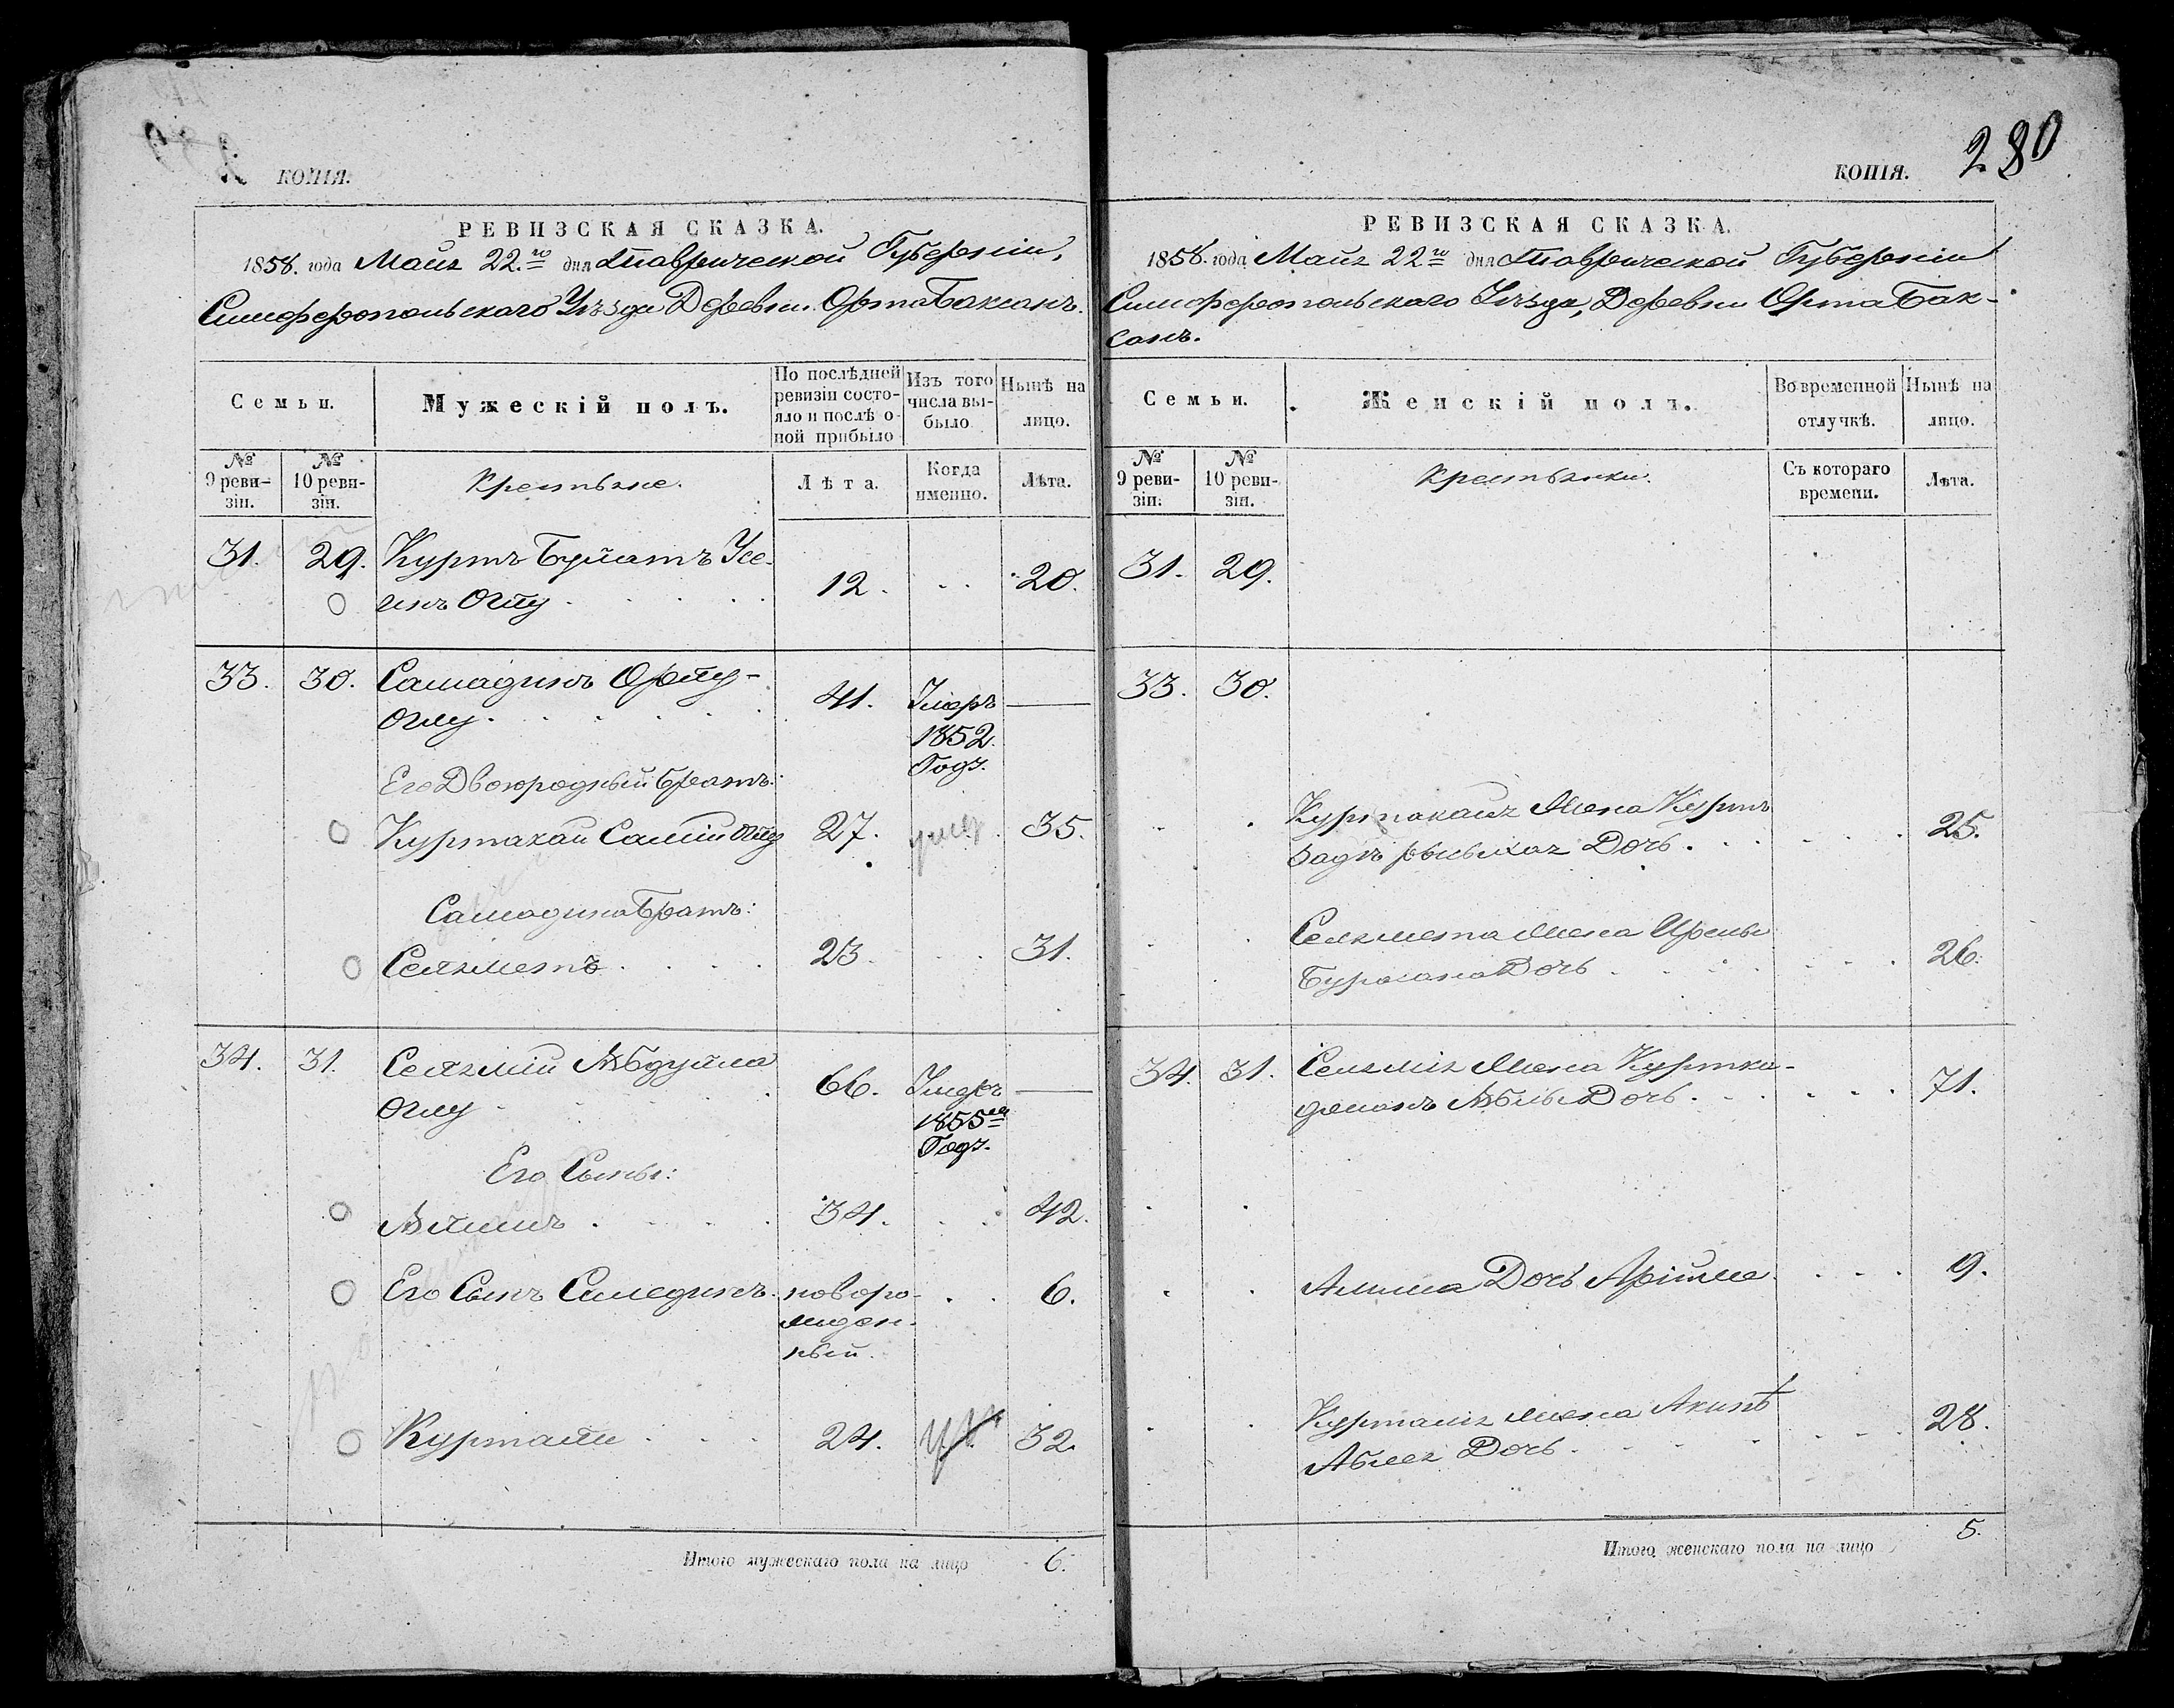 КОПІЯ.
РЕВИЗСКАЯ СКАЗКА.
1858. года Маія 22.го дня Таврической Губерніи,
Симферопольскаго Уѣзда Деревни Орта Баксанъ.
Семьи.
Мужескій полъ.
По послѣдней ревизіи состояло и послѣ оной прибыло
Изъ того числа выбыло
Нынѣ на лицо.
№ 9 ревизіи.
№ 10 ревизіи.
Крестьяне.
Лѣта.
Когда именно.
Лѣта.
31. 29. Куртъ Буматъ Усе-
инъ Оглу . . . . . 12. . . 20.
33. 30. Самадинъ
Оглу . . . . . 41. Умеръ —
1852.
Годъ.
Его Двоюродный братъ:
Куртакай Самій Оглу 27. умер. 35.
Самадина Братъ:
Селяметъ . . . . 23. . . . 31.
34. 31. Селямій Абдулла
Оглу . . . . . 66. Умеръ —
1855го
Годъ.
Его Сыны:
Алимъ . . . . . 34. . . . 42.
Его Сынъ Самединъ. новоро- . . . 6.
жден-
ный.
Куртали . . . . 24. 32.
Итого мужескаго пола на лицо 6.
КОПІЯ. 280
РЕВИЗСКАЯ СКАЗКА.
1858. года Маія 22го дня Таврической Губерніи
Симферопольскаго Уѣзда, Деревни Орта Бак-
санъ.
Семьи.
Женскій полъ.
Во временной отлучкѣ.
Нынѣ на лицо.
№ 9 ревизіи.
№ 10 ревизіи.
Крестьянки.
Съ котораго времени.
Лѣта.
31. 29.
33. 30.
Куртакая Жена Куртъ
Дочь . . . . 25.
Селямета Жена
Бурхана Дочь . . . . 26.
34. 31. Селямія Жена Куртки-
Дочь . . . . 71.
Алима Дочь . . . . 9.
Курталія Жена
Дочь . . . . 28.
Итого женскаго пола на лицо 5.